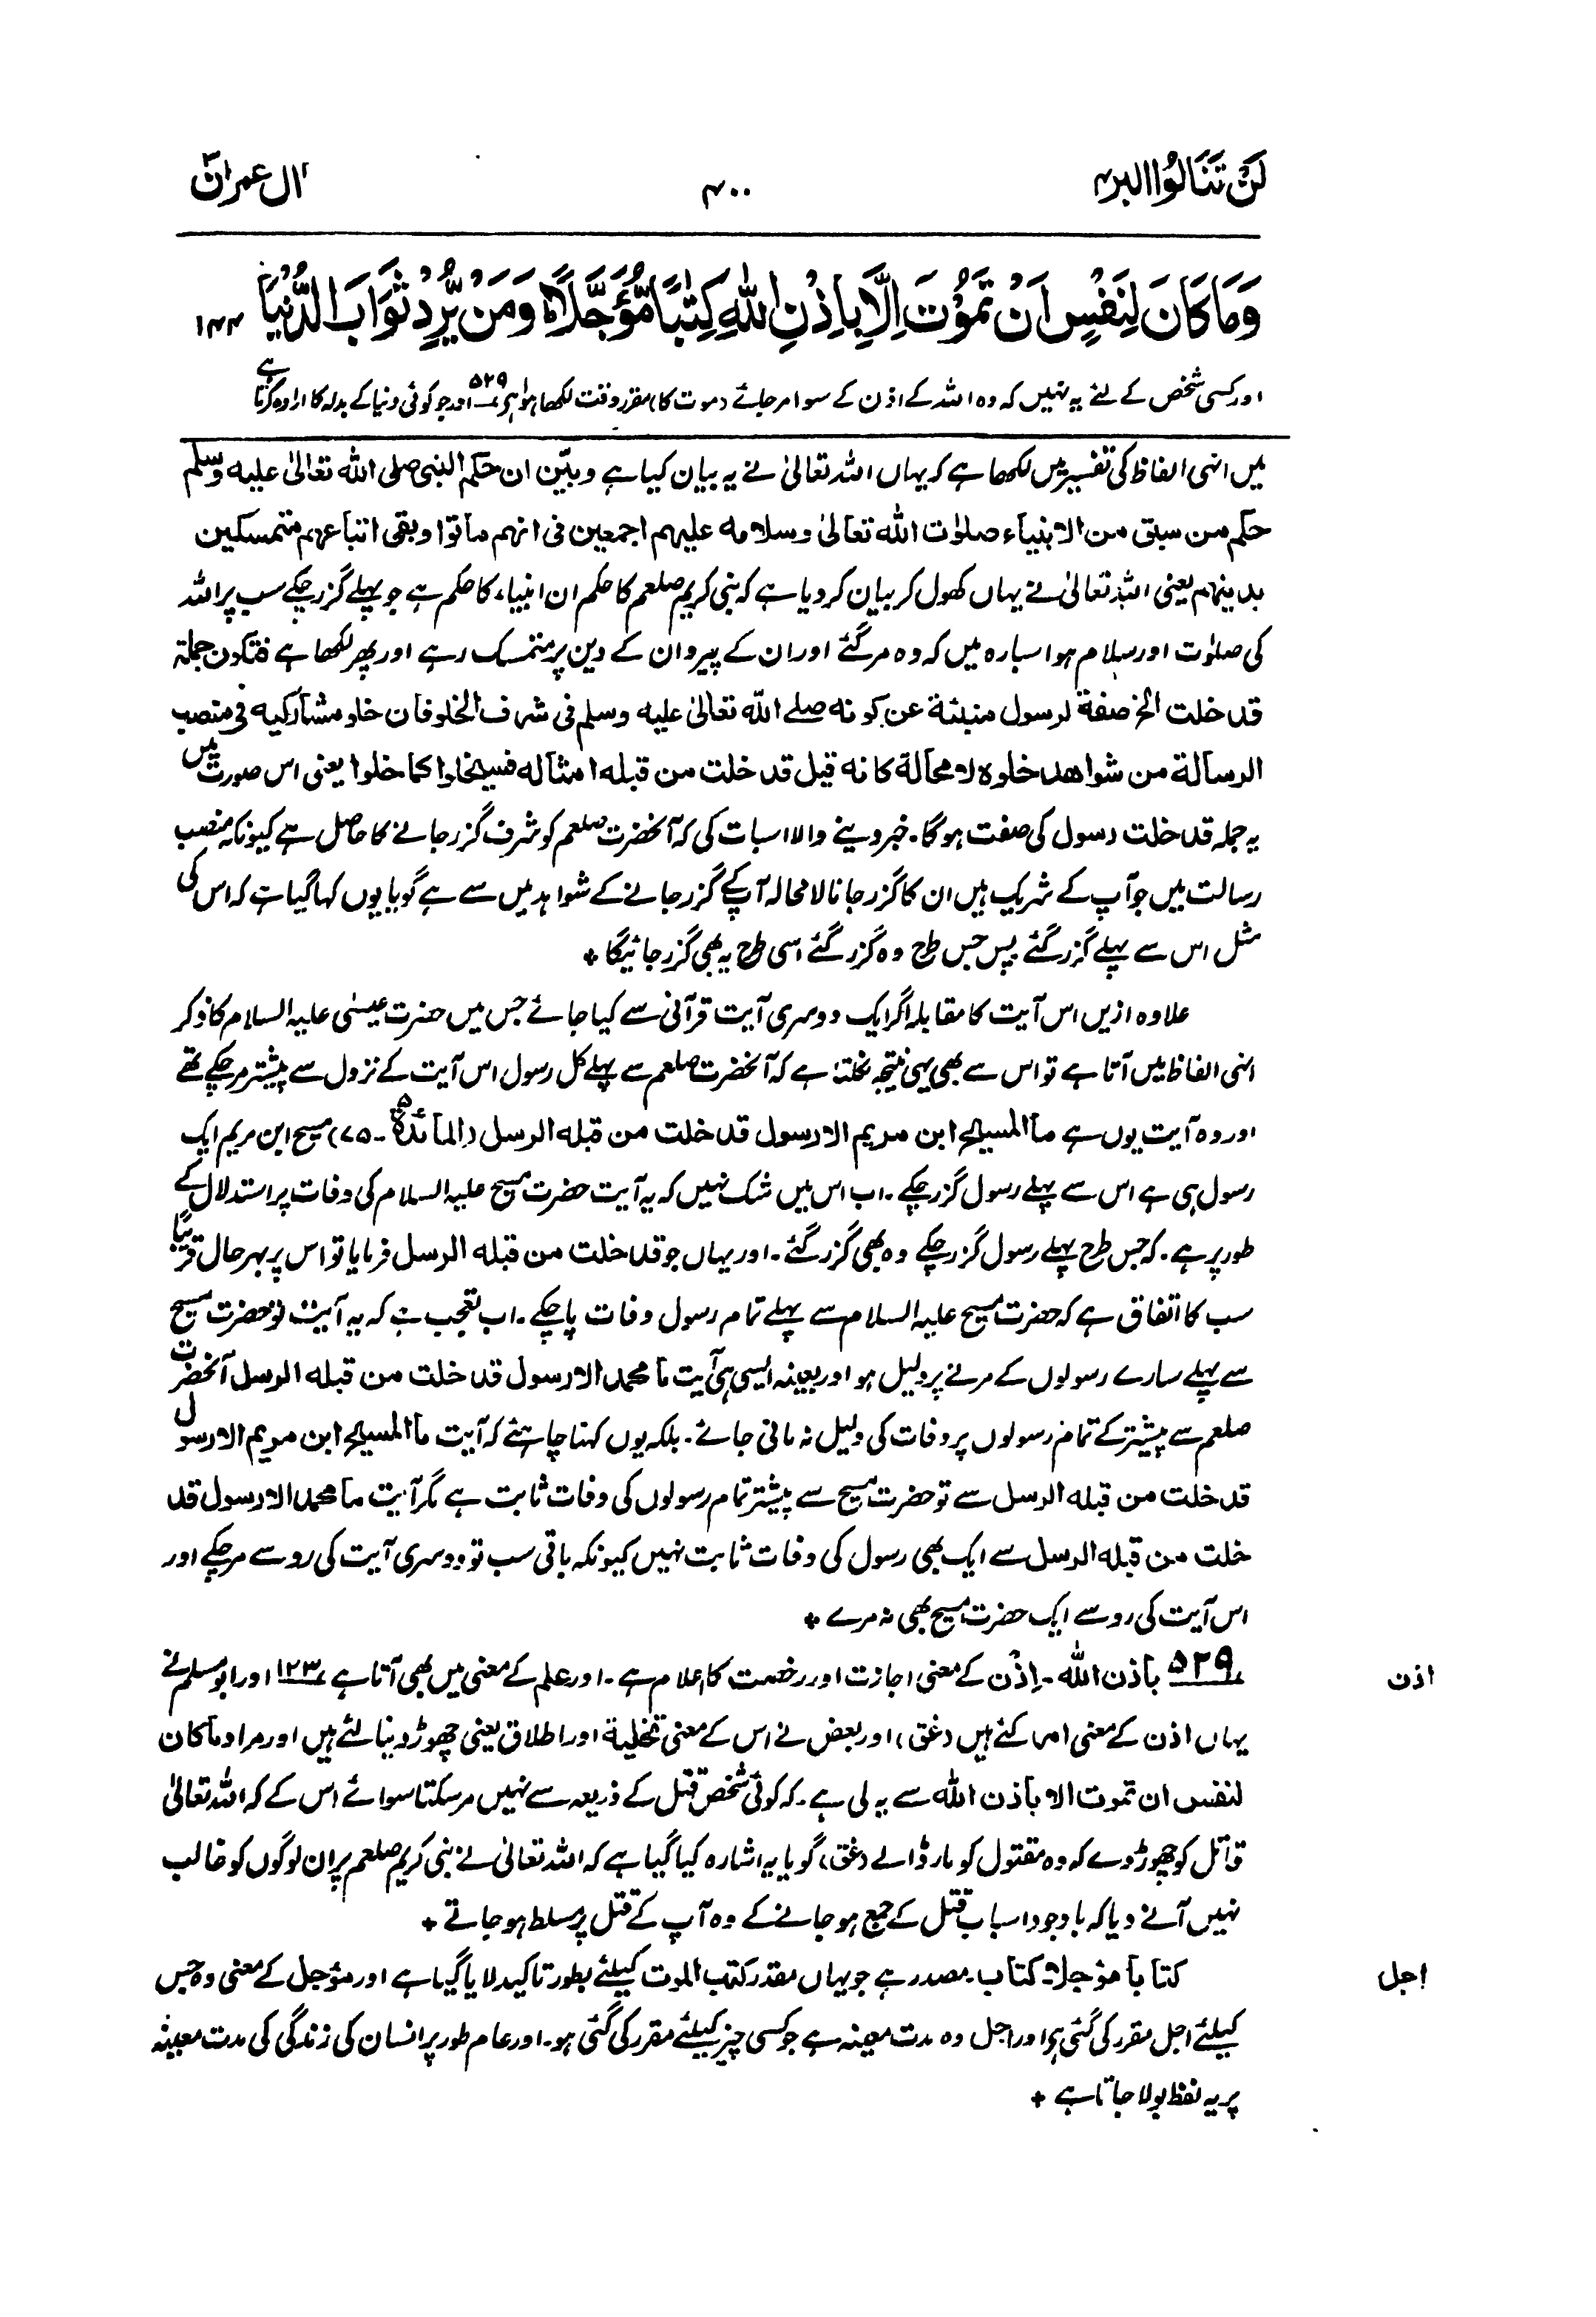 لَنْ تَنَالُوا البر۴
۴۰۰
اٰل عمران۳
وَمَا كَانَ لِنَفْسٍ اَنْ تَمُوْتَ اِلَّا بِاِذْنِ اللّٰهِ كِتٰبًا مُّؤَجَّلًا ؕ وَمَنْ يُّرِدْ ثَوَابَ الدُّنْيَا ۱۴۴
اور کسی شخص کے لئے یہ نہیں کہ وہ اللہ کے اذن کے سوا مر جائے (موت کا) مقرر وقت لکھا ہوا ہے ۵۲۹ اور جو کوئی دنیا کے بدلہ کا ارادہ کرتا ہے
میں انہی الفاظ کی تفسیر میں لکھا ہے کہ یہاں اللہ تعالیٰ نے یہ بیان کیا ہے وبیّن ان حکم النبی صلی اللہ تعالیٰ علیہ وسلم
حکم من سبق من الانبیاء صلوٰت اللہ تعالیٰ وسلامہ علیہم اجمعین فی انہم ماتوا وبقی اتباعہم متمسکین
بدینہم یعنی اللہ تعالیٰ نے یہاں کھول کر بیان کر دیا ہے کہ نبی کریم صلعم کا حکم ان انبیاء کا حکم ہے جو پہلے گزر چکے سب پر اللہ
کی صلوٰت اور سلام ہو اسبارہ میں کہ وہ مر گئے اور ان کے پیرو ان کے دین پر متمسک رہے اور پھر لکھا ہے فتکون جملة
قد خلت الخ صفة لرسول منبئة عن کونه صلے اللہ تعالیٰ علیہ وسلم فی شرف الخلو فان خلو مشارکیه فی منصب
الرسالة من شواهد خلوه لا محالة کانه قیل قد خلت من قبله امثاله فسیخلوا کما خلوا یعنی اس صورت میں
یہ جملہ قد خلت رسول کی صفت ہوگا۔ خبر دینے والا اسبات کی کہ آنحضرت صلعم کو شرف گزر جانے کا حاصل ہے کیونکہ منصب
رسالت میں جو آپ کے شریک ہیں ان کا گزر جانا لا محالہ آپ کے گزر جانے کے شواہد میں سے ہے گویا یوں کہا گیا ہے کہ اس کی
مثل اس سے پہلے گزر گئے پس جس طرح وہ گزر گئے اسی طرح یہ بھی گزر جائیگا +
علاوہ ازیں اس آیت کا مقابلہ اگر ایک دوسری آیت قرآنی سے کیا جائے جس میں حضرت عیسٰی علیہ السلام کا ذکر
انہی الفاظ میں آتا ہے تو اس سے بھی یہی نتیجہ نکلتا ہے کہ آنحضرت صلعم سے پہلے کل رسول اس آیت کے نزول سے پیشتر مر چکے تھے
اور وہ آیت یوں ہے ما المسیح ابن مریم الا رسول قد خلت من قبله الرسل (المائدۃ۵ ۔ ۷۵) مسیح ابن مریم ایک
رسول ہی ہے اس سے پہلے رسول گزر چکے۔ اب اس میں شک نہیں کہ یہ آیت حضرت مسیح علیہ السلام کی وفات پر استدلال کے
طور پر ہے۔ کہ جس طرح پہلے رسول گزر چکے وہ بھی گزر گئے۔ اور یہاں جو قد خلت من قبله الرسل فرمایا تو اس پر بہرحال قریبًا
سب کا اتفاق ہے کہ حضرت مسیح علیہ السلام سے پہلے تمام رسول وفات پا چکے۔ اب تعجب ہے کہ یہ آیت تو حضرت مسیح
سے پہلے سارے رسولوں کے مرنے پر دلیل ہو اور بعینہ ایسی ہی آیت ما محمد الا رسول قد خلت من قبله الرسل آنحضرت
صلعم سے پیشتر کے تمام رسولوں پر وفات کی دلیل نہ مانی جائے۔ بلکہ یوں کہنا چاہئے کہ آیت ما المسیح ابن مریم الا رسول
قد خلت من قبله الرسل سے تو حضرت مسیح سے پیشتر تمام رسولوں کی وفات ثابت ہے مگر آیت ما محمد الا رسول قد
خلت من قبله الرسل سے ایک بھی رسول کی وفات ثابت نہیں کیونکہ باقی سب تو دوسری آیت کی رو سے مر چکے اور
اس آیت کی رو سے ایک حضرت مسیح بھی نہ مرے +
اذن
۵۲۹ باذن اللہ۔ اِذْن کے معنی اجازت اور رخصت کا اعلام ہے۔ اور علم کے معنی میں بھی آتا ہے ۱۲۳ اور ابو مسلم نے
یہاں اذن کے معنی امر کئے ہیں (غق) اور بعض نے اس کے معنی تخلیة اور اطلاق یعنی چھوڑ دینا لئے ہیں اور مراد ما کان
لنفس ان تموت الا باذن اللہ سے یہ لی ہے۔ کہ کوئی شخص قتل کے ذریعہ سے نہیں مر سکتا سوائے اس کے کہ اللہ تعالیٰ
قاتل کو چھوڑ دے کہ وہ مقتول کو مار ڈالے (غق) گویا یہ اشارہ کیا گیا ہے کہ اللہ تعالیٰ نے نبی کریم صلعم پر ان لوگوں کو غالب
نہیں آنے دیا کہ باوجود اسباب قتل کے جمع ہو جانے کے وہ آپ کے قتل پر مسلط ہو جاتے +
اجل
کتابا مؤجلا۔ کتاب۔ مصدر ہے جو یہاں مقدر کتب الموت کیلئے بطور تاکید لایا گیا ہے اور مؤجل کے معنی وہ جس
کیلئے اجل مقرر کی گئی ہو اور اجل وہ مدت معینہ ہے جو کسی چیز کیلئے مقرر کی گئی ہو۔ اور عام طور پر انسان کی زندگی کی مدت معینہ
پر یہ لفظ بولا جاتا ہے +